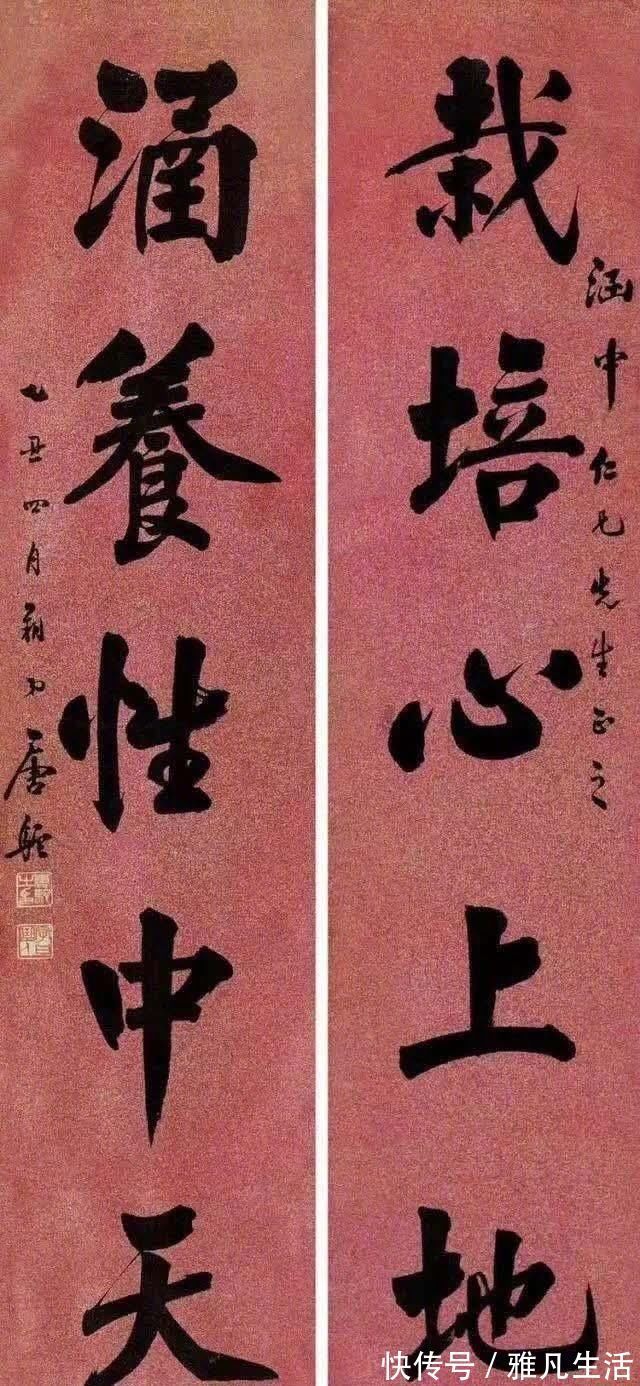 栽培心上地
涵中仁兄先生正之
涵養性中天
乙丑四月朔唐駝
快传号 / 雅凡生活